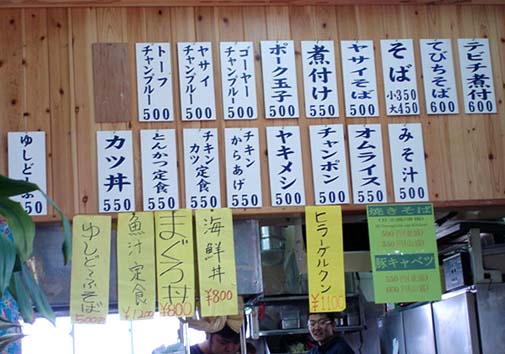 テビチ煮付
600
てびちそば
600
そば
小350
大450
ヤサイそば
500
煮付け
550
ポーク玉子
500
ゴーヤー
チャンプルー
500
ヤサイ
チャンプルー
500
トーフ
チャンプルー
500
みそ汁
550
オムライス
550
チャンポン
550
ヤキメシ
500
チキン
からあげ
550
チキン
カツ定食
550
とんかつ定食
550
カツ丼
550
ゆしど
50
焼きそば
豚キャベツ
ヒラーグルクン
¥1100
海鮮丼
¥800
まぐろ丼
¥800
魚汁定食
¥1200
ゆしどうふそば
500